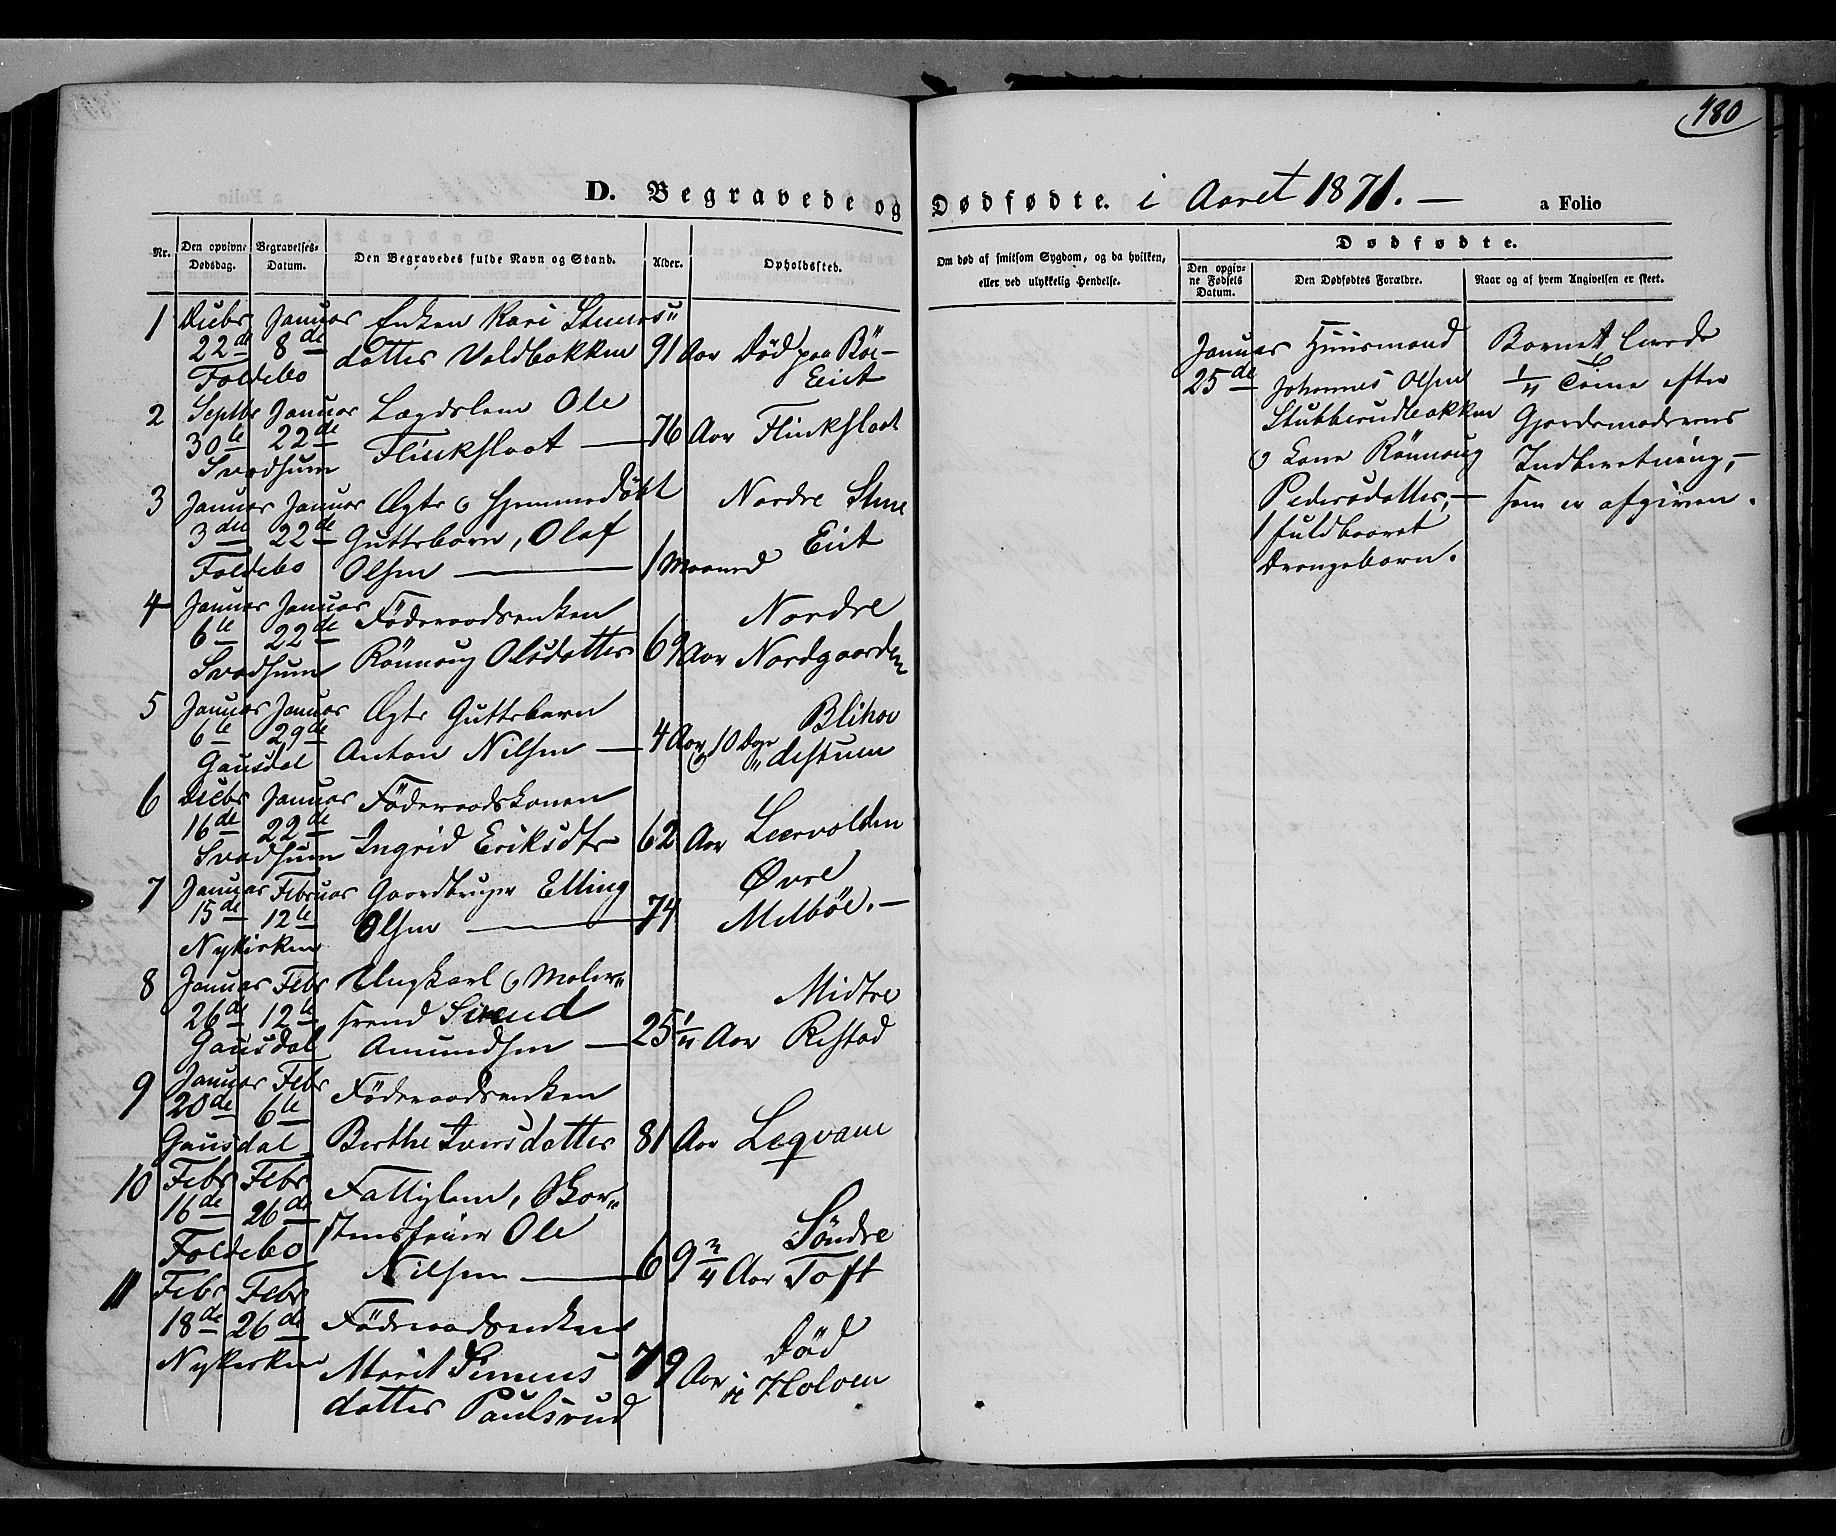 480
D. Begravede og Dødfødte. i Aaret 1871. — a Folio
Nr.
Den opgivne Dødsdag.
Begravelses-Datum.
Den Begravedes fulde Navn og Stand.
Alder.
Opholdssted.
Om død af smitsom Sygdom, og da hvilken,
eller ved ulykkelig Hendelse.
Dødfødte.
Den opgiv-
ne Fødsels
Datum.
Den Dødfødtes Forældre.
Naar og af hvem Angivelsen er skeet.
1 Decbr Januar Enken Kari Steners"
22de 8de datter Valdbakken 91 Aar Død paa Böe-
Foldebo
2 Septbr Januar Lægdslem Ole
30te 22de Flinksloat — 76 Aar Flinksloat
Svadsum
3 Januar Januar Ægte o hjemmedøbt Nordre Stene
3die 22de Guttebarn, Olaf
Foldebo Olsen — 1 Maaned
4 Januar Januar Föderaadsenken Nordre
6te 22de Rönnaug Olsdatter 69 Aar Nordgaarden
Svadsum
5 Januar Januar Ægte Guttebarn
6te 29de Anton Nilsen — 4 Aar o 10 Dage
Gausdal
6 Decbr Januar Föderaadskonen
16de 22de Ingrid Eriksdtr 62 Aar Leervolden
Svadsum
7 Januar Februar Gaardbruger Elling Øvre
15de 12te Olsen — 74 Melböe. —
Nykirken
8 Januar Febr Ungkarl o Maler"
26de 12te svend Svend Midtre
Gausdal Amundsen — 25 1/4 Aar Ristad
9 Januar Febr Föderaadsenken
20de 6te
Gausdal Berthe Iversdatter 81 Aar Legvam
10 Febr Febr Fattiglem, Skor"
16de 26de stensfeier Ole Söndre
Foldebo Nilsen — 69 3/4 Aar Toft
11 Febr Febr
18de 26de Föderaadsenken Död
Nykirken Marit Simens 79 Aar i Holoen
datter Paulsrud
Januar Huusmand
25de Johannes Olsen
Stubberudbakken
o Kone Rönnaug
Pedersdatter, —
1 fuldbaaret
Drengebarn.
Barnet levede
1/4 Time efter
Gjordemoderens
Indberetning, —
som er afgiven.